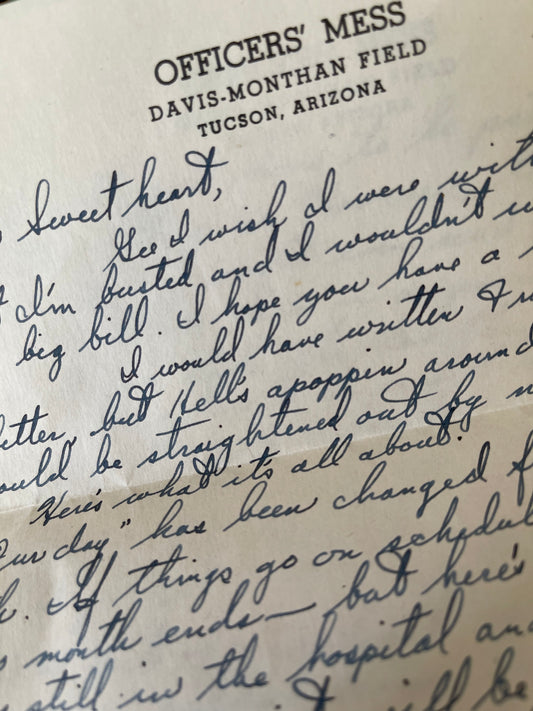 OFFICERS' MESS
DAVIS-MONTHAN FIELD
TUCSON, ARIZONA
Sweetheart,
Gee I wish I were with
I'm busted and I wouldn't
big bill. I hope you have a
I would have written
but Hell's apoppin around
be straightened out by
Here's what it's all about.
day" has been changed
If things go on
month ends — but here's
still in the hospital
will be